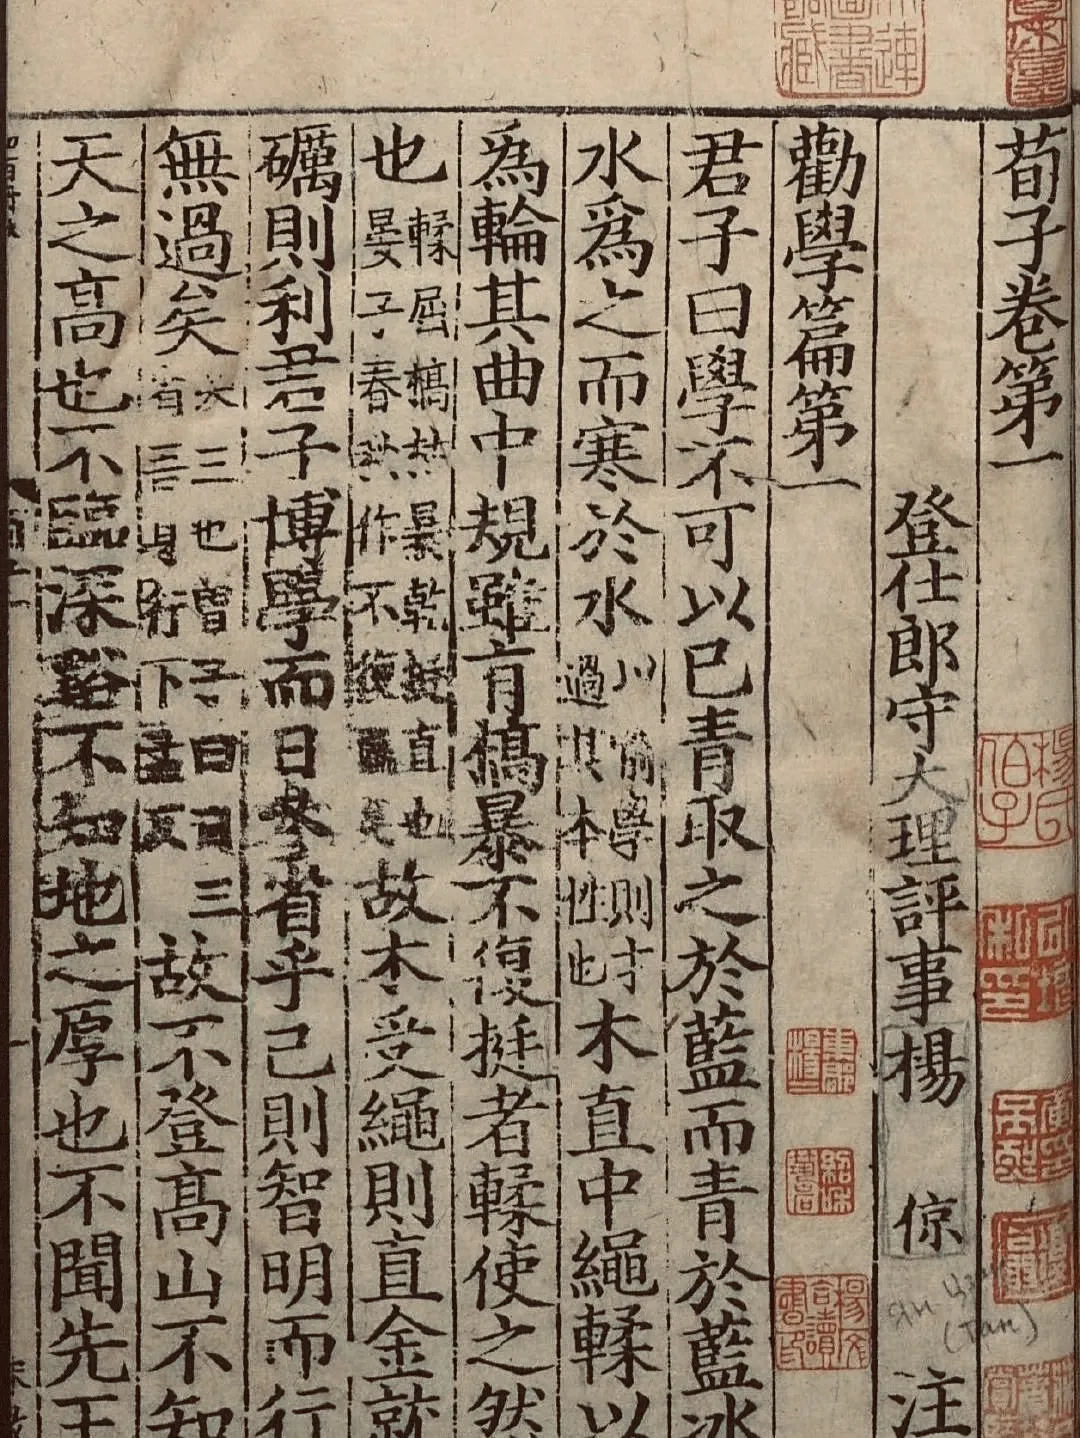 荀子卷第一
登仕郎守大理評事楊 倞 注
勸學篇第一
君子曰學不可以已青取之於藍而青於藍冰
水爲之而寒於水以喻學則才過其本性也木直中繩輮以
爲輪其曲中規雖有槁暴不復挺者輮使之然
也輮屈槁枯暴乾挺直也晏子春秋作不復羸矣故木受繩則直金就
礪則利君子博學而日參省乎己則智明而行
無過矣三也曾子曰日三省吾身行下孟反故不登高山不知
天之高也不臨深谿不知地之厚也不聞先王